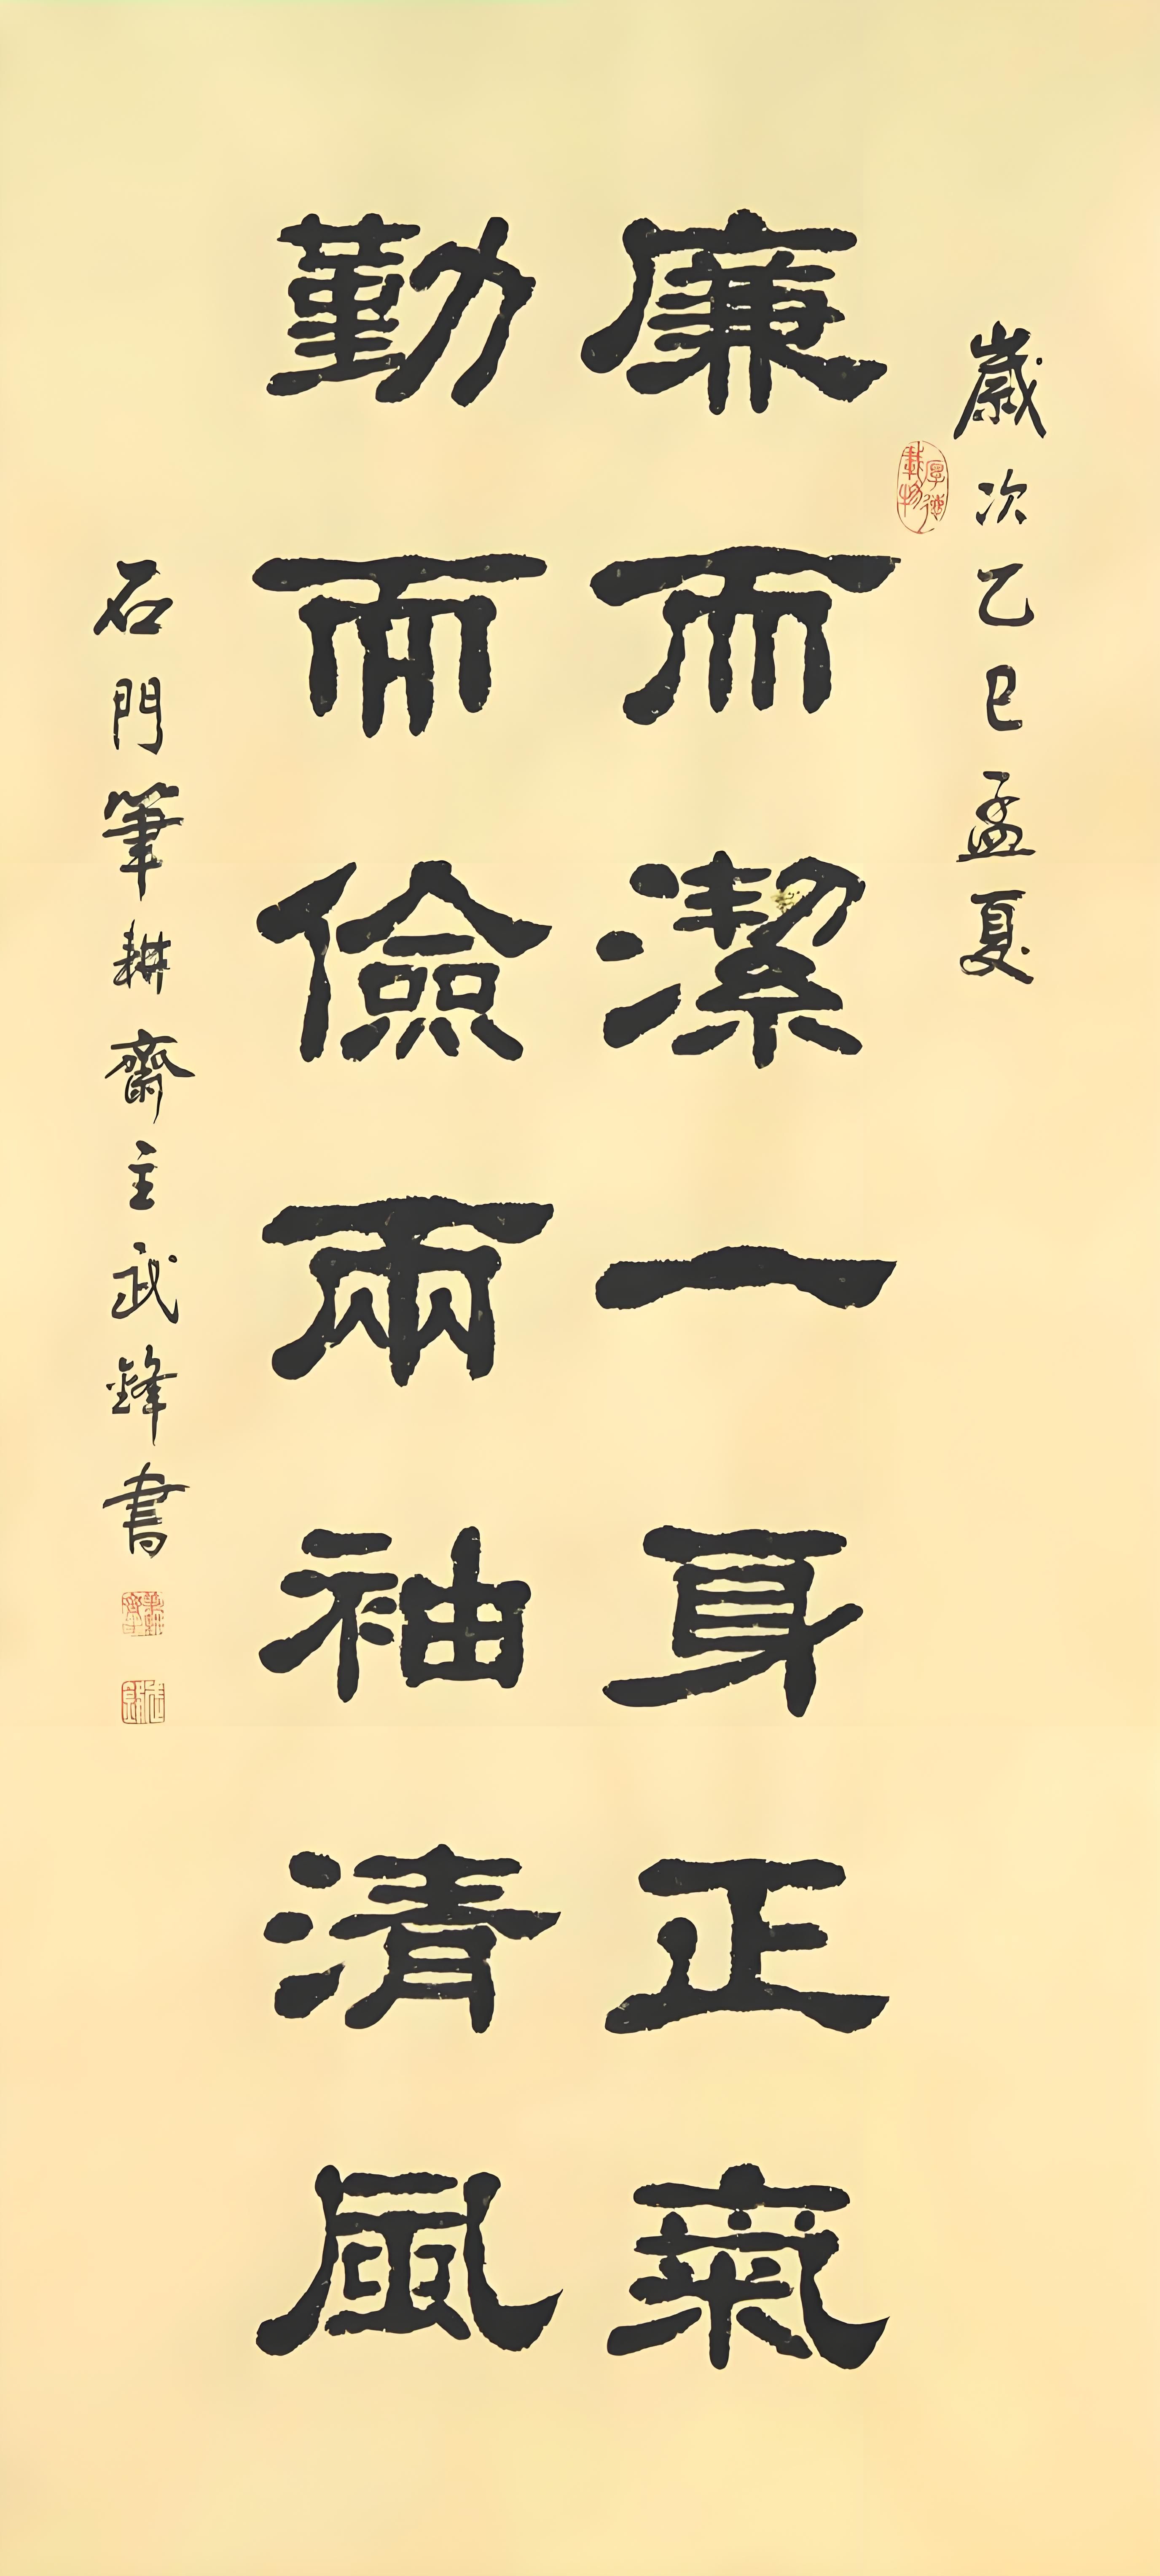 歲次乙巳孟夏
厚德載物
廉而潔一身正氣
勤而儉兩袖清風
石門筆耕齋主武鋒書